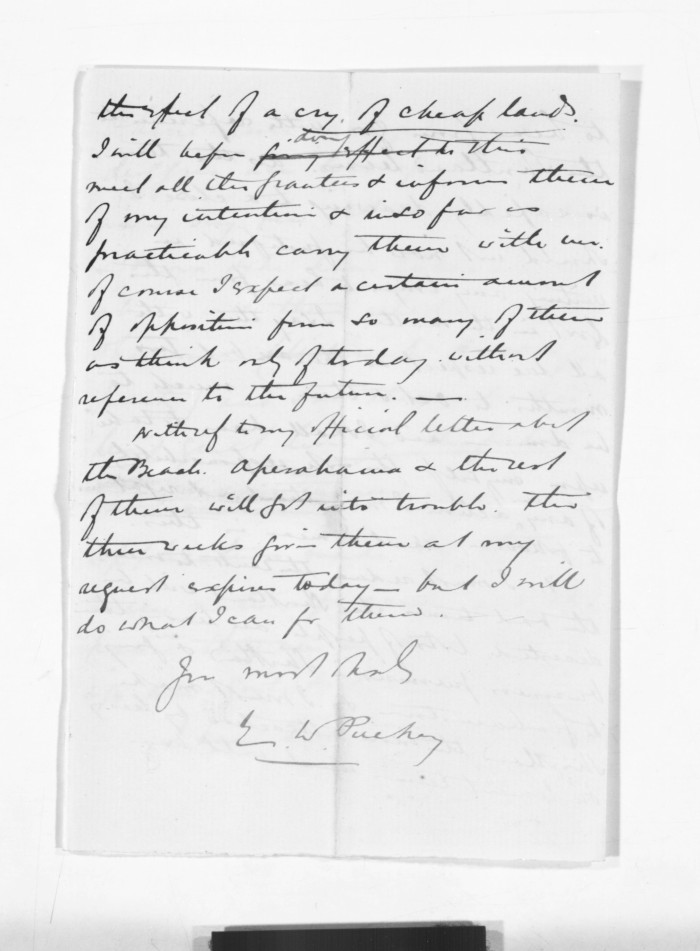 the effect of a cry of cheap lands.
I will before doing this
meet all the grantees & inform them
of my intention & in so far as
practicable carry them with me.
Of course I expect a certain amount
of opposition from so many of them
as think only of today without
reference to the future. —
With ref to my official letter abt
the Beach. Aperahama & the rest
of them will get into trouble. The
three weeks given them at my
request expires today — but I will
do what I can for them.
Yrs most
E. W. Puckey